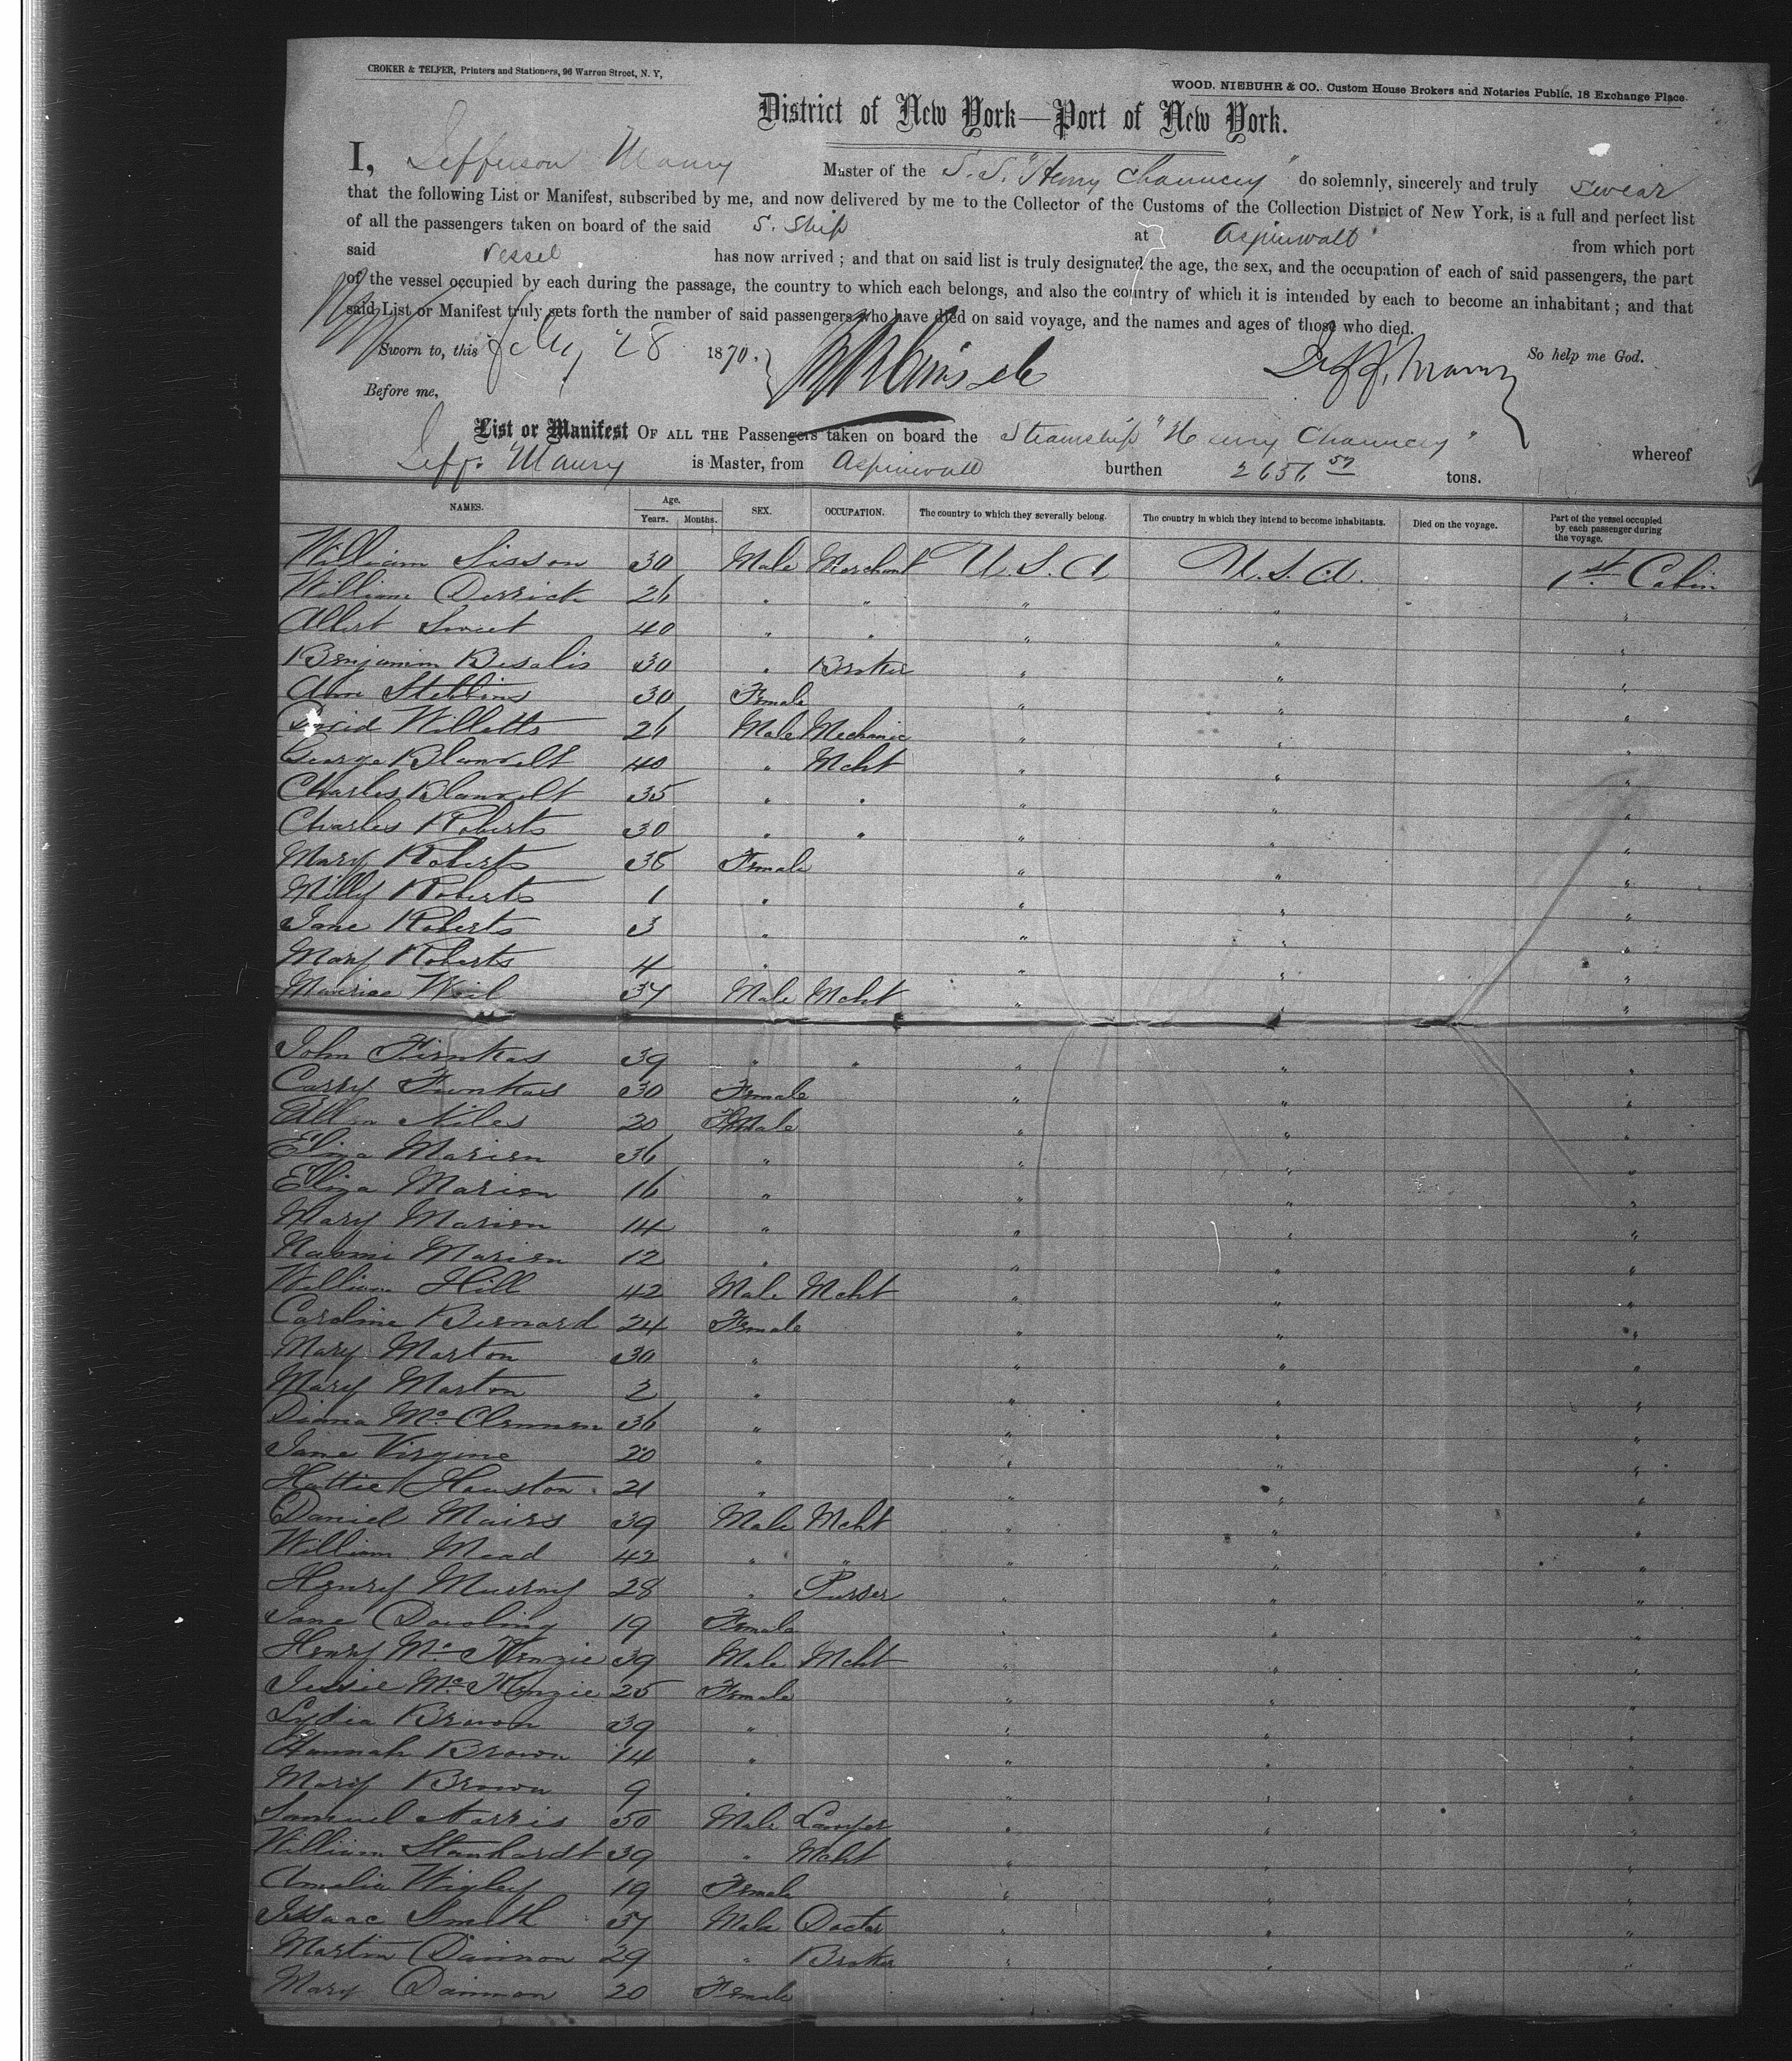 CROKER & TELFER, Printers and Stationers, 96 Warren Street, N. Y,
WOOD. NIEBUHR & CO. Custom House Brokers and Notaries Public. 18 Exchange Place
District of New York—Port of New York.
I, Jefferson Maury Master of the S. S. "Henry Chauncey" do solemnly, sincerely and truly swear
that the following List or Manifest, subscribed by me, and now delivered by me to the Collector of the Customs of the Collection District of New York, is a full and perfect list
of all the passengers taken on board of the said S. Ship at Aspinwall from which port
said vessel has now arrived ; and that on said list is truly designated the age, the sex, and the occupation of each of said passengers, the part
of the vessel occupied by each during the passage, the country to which each belongs, and also the country of which it is intended by each to become an inhabitant ; and that
said List or Manifest truly sets forth the number of said passengers who have died on said voyage, and the names and ages of those who died.
Sworn to, this 28 1870. Jeff. Maury So help me God.
Before me,
List or Manifest OF ALL THE Passengers taken on board the Steamship "Henry Chauncey" whereof
Jeff. Maury is Master, from Aspinwall burthen 2656 57 tons.
NAMES. Age. Years. Months. SEX. OCCUPATION. The country to which they severally belong. The country in which they intend to become inhabitants. Died on the voyage. Part of the vessel occupied by each passenger during the voyage.
William Sisson 30 Male Merchant U. S. A U. S. A. 1st Cabin
William Derrick 26 " " " " "
Albert Sweet 40 " " " " "
Benjamin Besalis 30 " Broker " " "
Ann Stebbins 30 Female " " "
David Willetts 26 Male Mechanic " " "
George Blauvelt 40 " Mcht " " "
Charles Blauvelt 35 " " " " "
Charles Roberts 30 " " " " "
Mary Roberts 38 Female " " "
Milly Roberts 1 " " " "
Jane Roberts 3 " " " "
Mary Roberts 4 " " " "
Maurice Weil 37 Male Mcht " " "
John Firnkas 39 " " " " "
Carry Funkas 30 Female " " "
Ellen Niles 20 Female " " "
Eliza Marion 36 " " " "
Eliza Marion 16 " " " "
Mary Marion 14 " " " "
Naomi Marion 12 " " " "
William Hill 42 Male Mcht " " "
Caroline Bernard 24 Female " " "
Mary Marton 30 " " " "
Mary Marton 2 " " " "
Diana Mc Clennen 36 " " " "
Jane Virgine 20 " " " "
Hattie Houston 21 " " " "
Daniel Mairs 39 Male Mcht " " "
William Mead 42 " " " " "
Henry Murray 28 " Purser " " "
Jane Dowling 19 Female " " "
Henry Mc Kenzie 39 Male Mcht " " "
Jessie Mc Kenzie 25 Female " " "
Lydia Brown 39 " " " "
Hannah Brown 14 " " " "
Mary Brown 9 " " " "
Samuel Norris 50 Male Lawyer " " "
William Stanhardt 39 " Mcht " " "
Amelia Wigley 19 Female " " "
Issaac Smith 37 Male Doctor " " "
Martin Dannon 29 " Broker " " "
Mary Dannon 20 Female